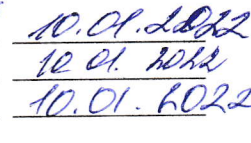 10.01.2022
10.01.2022
10.01.2022